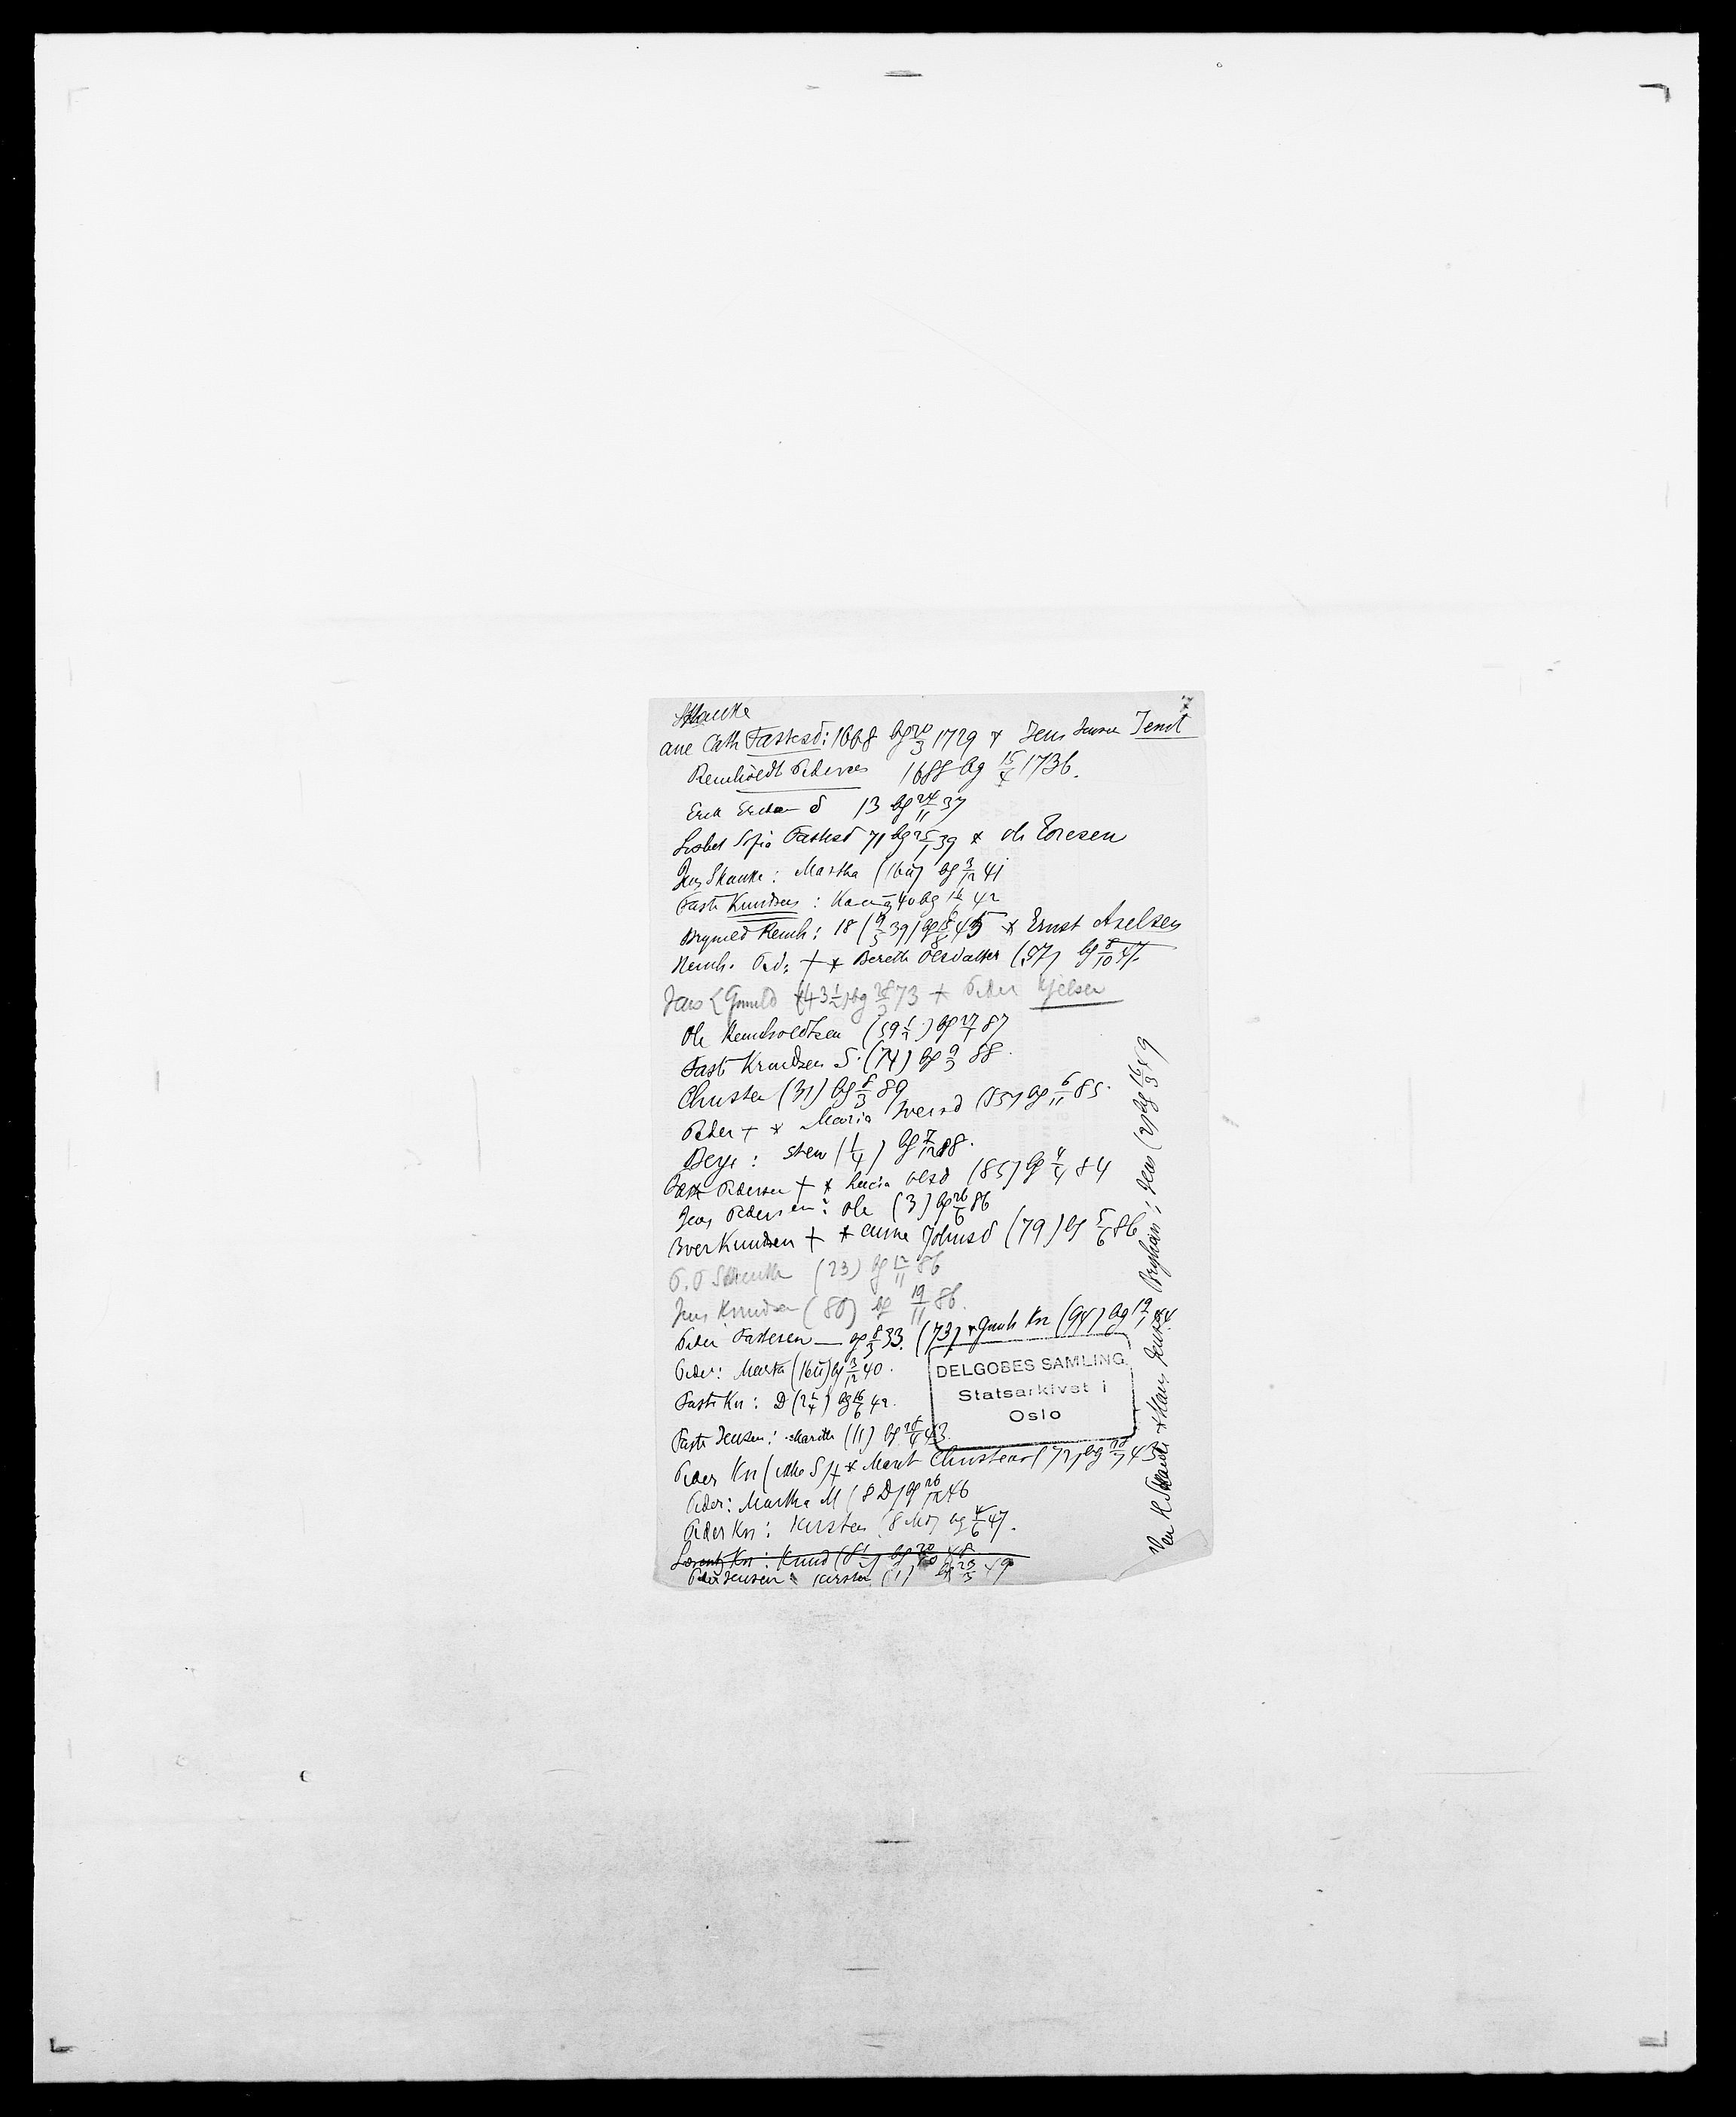 Skanke
ane Cath Fastesd: 1668 bg 20/3 1729 * Jens Jensen Tendt
Reinholdt Pedersen 1688 bg 15/4 1736.
Erik Ericksen d 13 bg 24/11 37
Lisbet Sofia Fastesd 71 bg 25/1 39 * Ole Toresen
Jens Skanke: Martha (16u) bg 3/12 41
Faste Knudsens: Karen 40 bg 16/6 42
Brynild Reinh: 18 39) bg 45 * Ernst Axelsen
Reinh. Ped: + * Bereth Olesdatter (57) bg 8/10 47.
Jens Gunild (43 1/2) bg 28/3 73 * Peder Kjelsen
Ole Reinholdtsen (59 1/2) bg 27/1 87
Faste Knudsen S. (74) bg 9/3 88.
Christen (31) bg 8/3 89
Peder + * Maria Iversd (85) bg 6/11 85.
Berge: Sten (1/4) bg 7/12 88.
Faste Pedersen + * Lucia Olesd (85) bg 4/4 84
Jens Pedersen: Ole (3) bg 26/6 86
Iver Knudsen + * anne Johnsd (79) bg 5/6 86
P. F Skanke (23) bg 12/11 86
Jens Knudsen (80) bg 19/11 86.
Peder Fastesen — bg 8/3 33. (73) * Gunh Kn (94) bg 19/1 44.
Peder: Marta (16u) bg 3/12 40.
Faste Kn: D (2 1/4) bg 16/6 42.
Faste Jensen: Marith (11) bg 28/4 43.
Peder Kn (ikke S) + * Marit Christensd (72) bg 43
Peder: Martha M (8 D) bg 26/12 46
Peder Kn: Kirsten (8 Md) bg 4/6 47.
Lorentz Kn: Knud (8) bg 20/10 48.
Peder Jensen: Kirsten (1) bg 23/3 49
DELGOBES SAMLING
Statsarkivet i
Oslo
Skanke * Hans Jensen Brynhild: Jens (2) bg 16/3 59